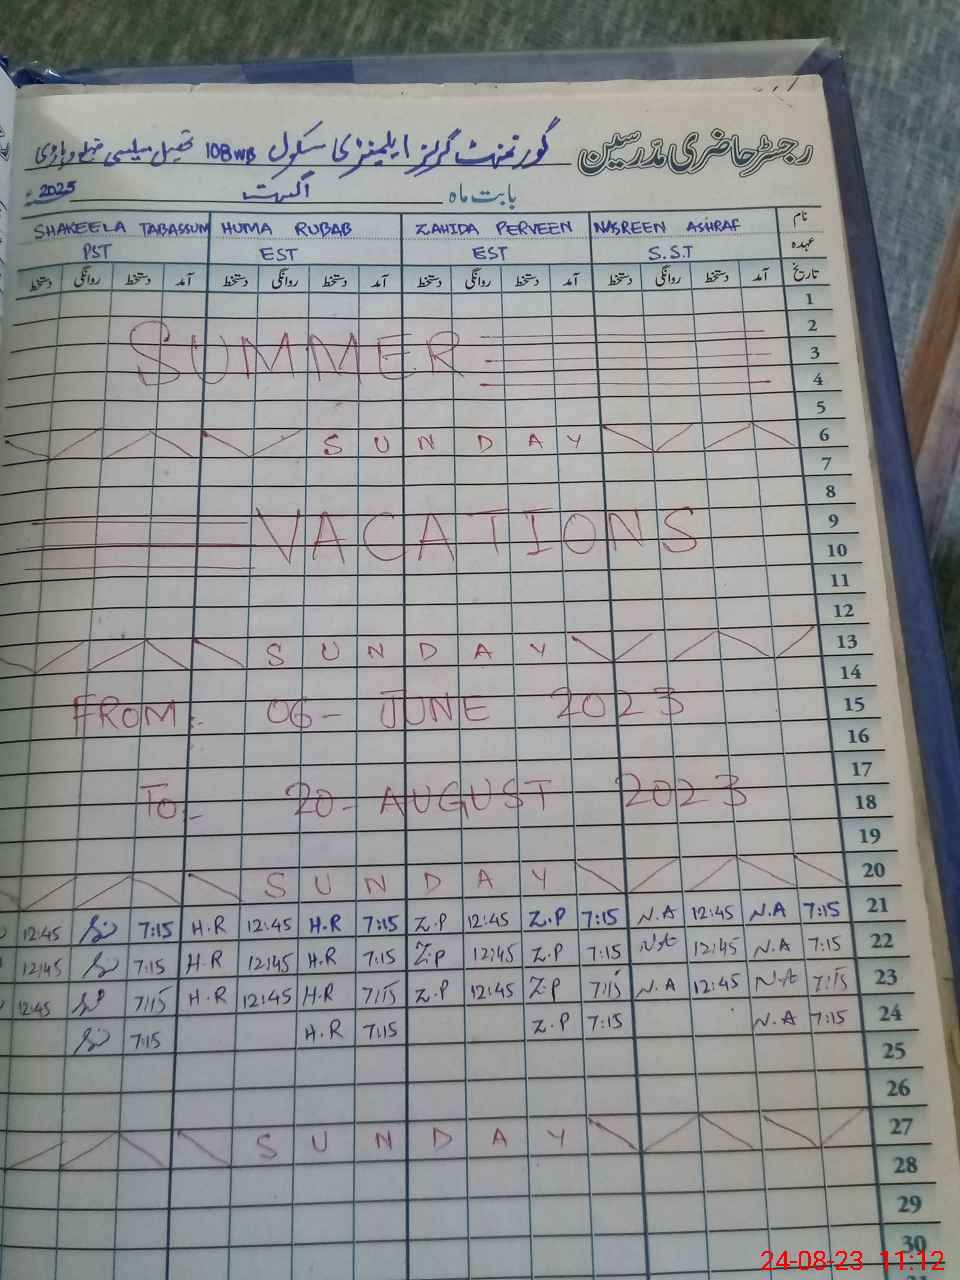 رجسٹر حاضری مدرسین گورنمنٹ گرلز ایلیمنٹری سکول 108WB تحصیل میلسی ضلع وہاڑی
بابت ماہ اگست 2023
نام NASREEN ASHRAF ZAHIDA PERVEEN HUMA RUBAB SHAKEELA TABASSUM
عہدہ S.S.T EST EST PST
تاریخ آمد دستخط روانگی دستخط آمد دستخط روانگی دستخط آمد دستخط روانگی دستخط آمد دستخط روانگی دستخط
1
2
SUMMER 3
4
5
SUNDAY 6
7
8
VACATIONS 9
10
11
12
SUNDAY 13
14
FROM:- 06- JUNE 2023 15
16
17
To:- 20- AUGUST 2023 18
19
SUNDAY 20
12:45 7:15 H.R 12:45 H.R 7:15 Z.P 12:45 Z.P 7:15 N.A 12:45 N.A 7:15 21
12:45 7:15 H.R 12:45 H.R 7:15 Z.P 12:45 Z.P 7:15 N.A 12:45 N.A 7:15 22
12:45 7:15 H.R 12:45 H.R 7:15 Z.P 12:45 Z.P 7:15 N.A 12:45 N.A 7:15 23
7:15 H.R 7:15 Z.P 7:15 N.A 7:15 24
25
26
SUNDAY 27
28
29
30
24-08-23 11:12